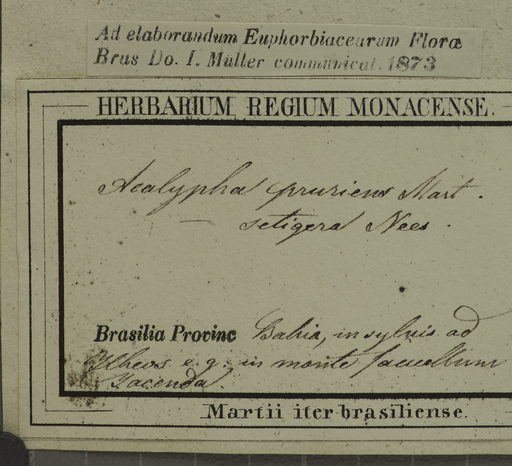 Ad elaborandum Euphorbiacearum Floræ
Bras Do. I. Müller communicat. 1873
HERBARIUM REGIUM MONACENSE.
Acalypha pruriens Mart.
— setigera Nees.
Brasilia Provinc Bahia, in sylvis ad
Ilheos e. g. in monte